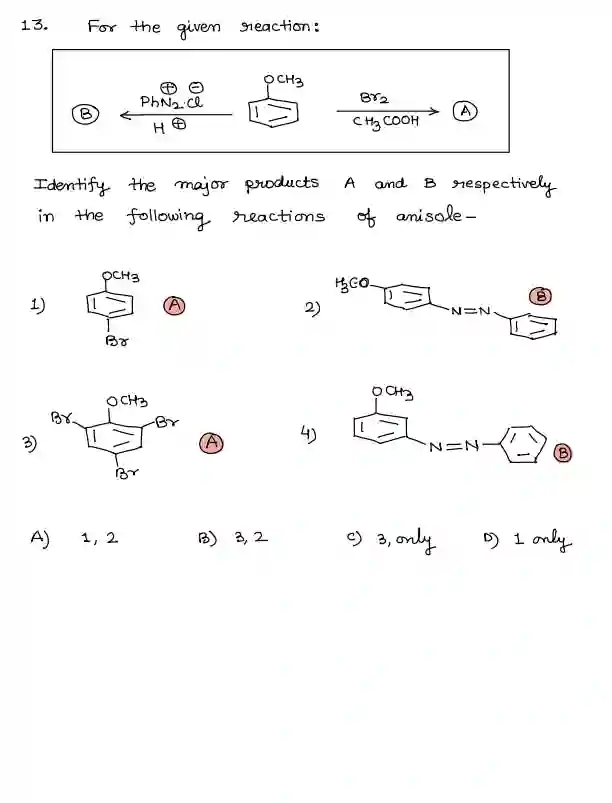 13. For the given reaction:
B PhN2.Cl ⊕ ⊖ H ⊕ OCH3 Br2 CH3COOH A
Identify the major products A and B respectively
in the following reactions of anisole-
1) OCH3 Br A
2) H3CO N=N B
3) OCH3 Br Br Br A
4) OCH3 N=N B
A) 1, 2 B) 3, 2 C) 3, only D) 1 only